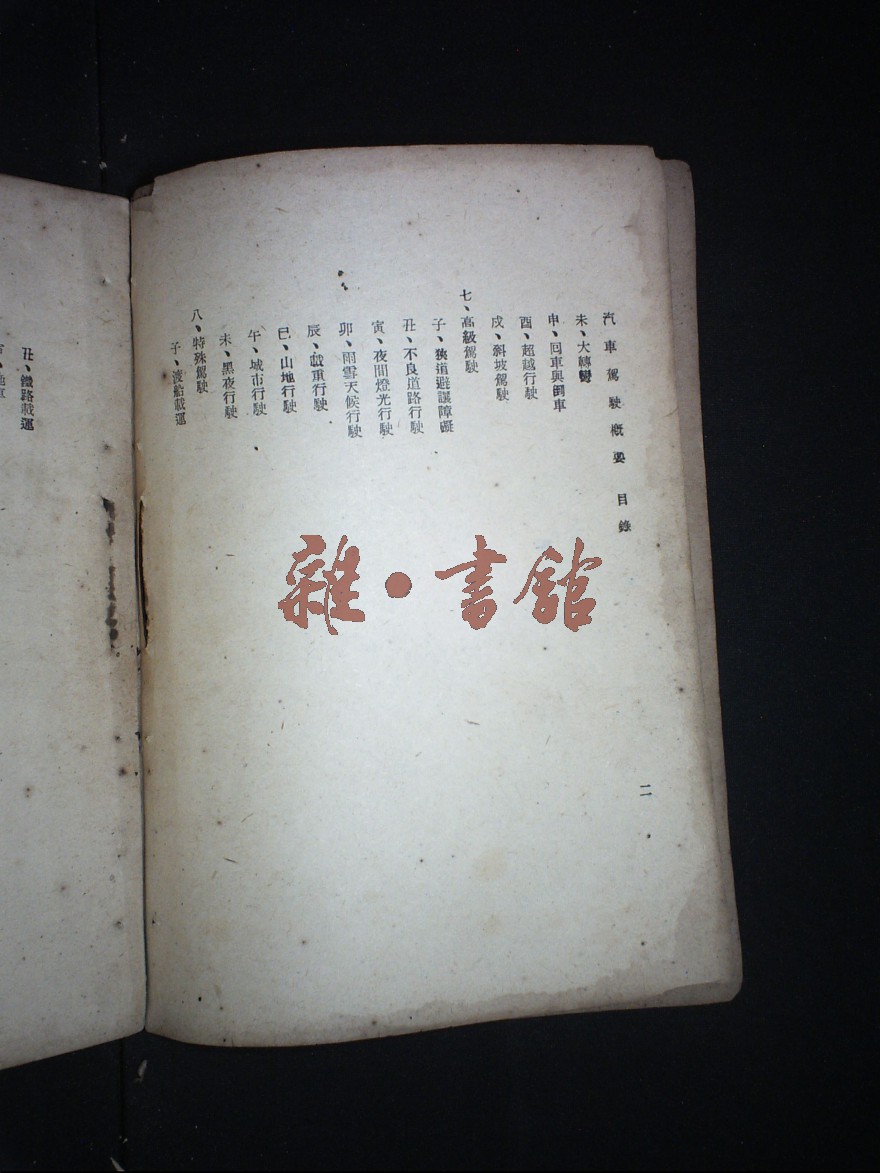 汽車駕駛概要 目錄
二
未、大轉彎
申、回車與倒車
酉、超越行駛
戌、斜坡駕駛
七、高級駕駛
子、狹道避讓障礙
丑、不良道路行駛
寅、夜間燈光行駛
卯、雨雪天候行駛
辰、載重行駛
巳、山地行駛
午、城市行駛
未、黑夜行駛
八、特殊駕駛
子、渡船載運
丑、鐵路載運
雜·書館